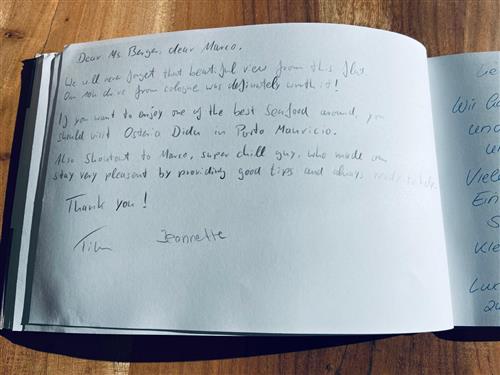 Dear Ms. Berger, dear Marco,
We will never forget that beautiful view from this flat.
Our 10h drive from cologne was definately worth it!
If you want to enjoy one of the best Seafood around, you
should visit Osteria Dida in Porto Mauricio.
Also Shoutout to Marco, super chill guy, who made our
stay very pleasent by providing good tips and always ready to help.
Thank you!
Tim Jeannette
Wir
und
Viele
Ein
Kle